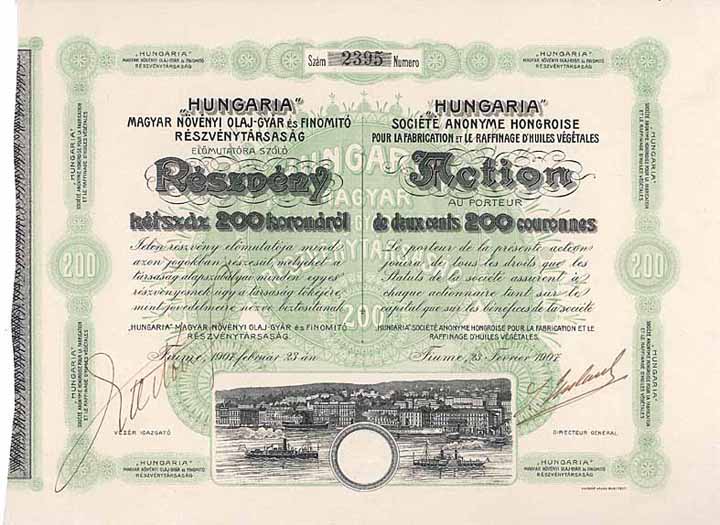 Szám 2395 Numero
„HUNGARIA”
MAGYAR NÖVÉNYI OLAJ-GYÁR ÉS FINOMITÓ
RÉSZVÉNYTÁRSASÁG
„HUNGARIA”
MAGYAR NÖVÉNYI OLAJ-GYÁR ÉS FINOMITÓ
RÉSZVÉNYTÁRSASÁG
„HUNGARIA”
MAGYAR NÖVÉNYI OLAJ-GYÁR ÉS FINOMITÓ
RÉSZVÉNYTÁRSASÁG
ELŐMUTATÓRA SZÓLÓ
Részvény
kétszáz 200 koronáról
Jelen részvény előmutatója mind
azon jogokban részesül, melyeket a
társaság alapszabályai minden egyes
részvényesnek úgy a társaság tőkéjére,
mint jövedelmeire nézve biztosítanak
„HUNGARIA” MAGYAR NÖVÉNYI OLAJ-GYÁR ÉS FINOMITÓ
RÉSZVÉNYTÁRSASÁG.
Fiume, 1907. február 23-án
VEZÉR IGAZGATÓ
„HUNGARIA”
SOCIÉTÉ ANONYME HONGROISE
POUR LA FABRICATION ET LE RAFFINAGE D'HUILES VÉGÉTALES
Action
AU PORTEUR
de deux cents 200 couronnes
Le porteur de la présente action
jouira de tous les droits que les
Statuts de la société assurent à
chaque actionnaire tant sur le
capital que sur les bénéfices de la société
„HUNGARIA” SOCIÉTÉ ANONYME HONGROISE POUR LA FABRICATION ET LE
RAFFINAGE D'HUILES VÉGÉTALES.
Fiume, 23. Fevrier 1907.
DIRECTEUR GENERAL
HUNGARIA
MAGYAR
200
200
200
„HUNGARIA”
SOCIÉTÉ ANONYME HONGROISE POUR LA FABRICATION
ET LE RAFFINAGE D'HUILES VÉGÉTALES
„HUNGARIA”
SOCIÉTÉ ANONYME HONGROISE POUR LA FABRICATION
ET LE RAFFINAGE D'HUILES VÉGÉTALES
„HUNGARIA”
SOCIÉTÉ ANONYME HONGROISE POUR LA FABRICATION
ET LE RAFFINAGE D'HUILES VÉGÉTALES
„HUNGARIA”
SOCIÉTÉ ANONYME HONGROISE POUR LA FABRICATION
ET LE RAFFINAGE D'HUILES VÉGÉTALES
„HUNGARIA”
MAGYAR NÖVÉNYI OLAJ-GYÁR ÉS FINOMITÓ
RÉSZVÉNYTÁRSASÁG
„HUNGARIA”
MAGYAR NÖVÉNYI OLAJ-GYÁR ÉS FINOMITÓ
RÉSZVÉNYTÁRSASÁG